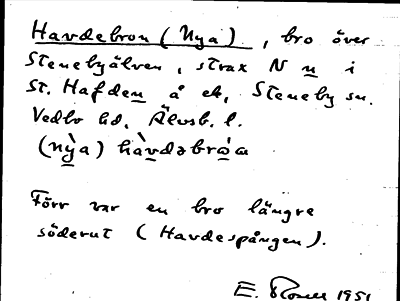 Havdebron (Nya), bro över
Stenebyälven, strax N n i
St. Hafden å ek, Steneby sn.
Vedbo hd. Älvsb. l.
(nỳa) hàvdəbróa
Förr var en bro längre
söderut (Havdespången).
E. 1951